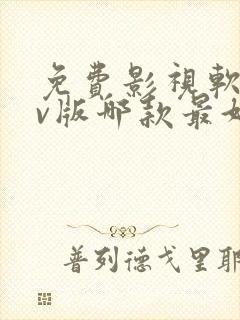 免費影視軟
v版哪款最好
普列德戈里耶